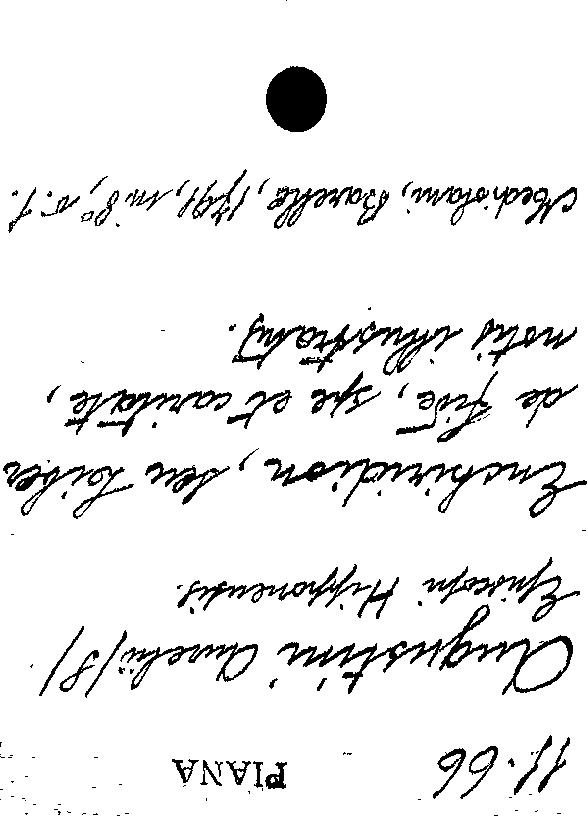 11.66 PIANA
Augustini Aurelii (S)
Episcopi Hipponensis.
Enchiridion, seu Liber
de fide, spe et caritate,
notis illustratus.
Mediolani, Barelle, 1791, in 8°, v. 1.